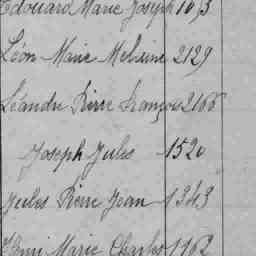 Edouard Marie Joseph
Léon Marie 2129
Léandre Pierre François 2166
Joseph Jules 1520
Jules Pierre Jean 1343
Henri Marie Charles 1162